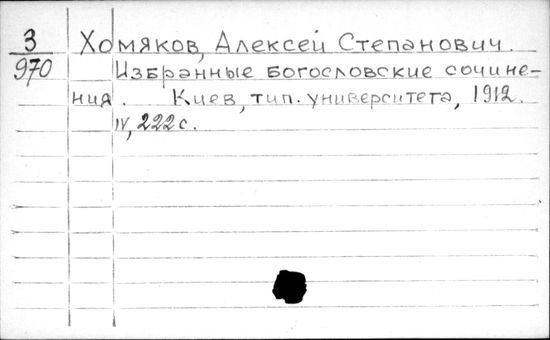 3 Хомяков, Алексей Степанович.
970 Избранные богословские сочине-
ния. Киев, тип. университета, 1912.
IV, 222 с.